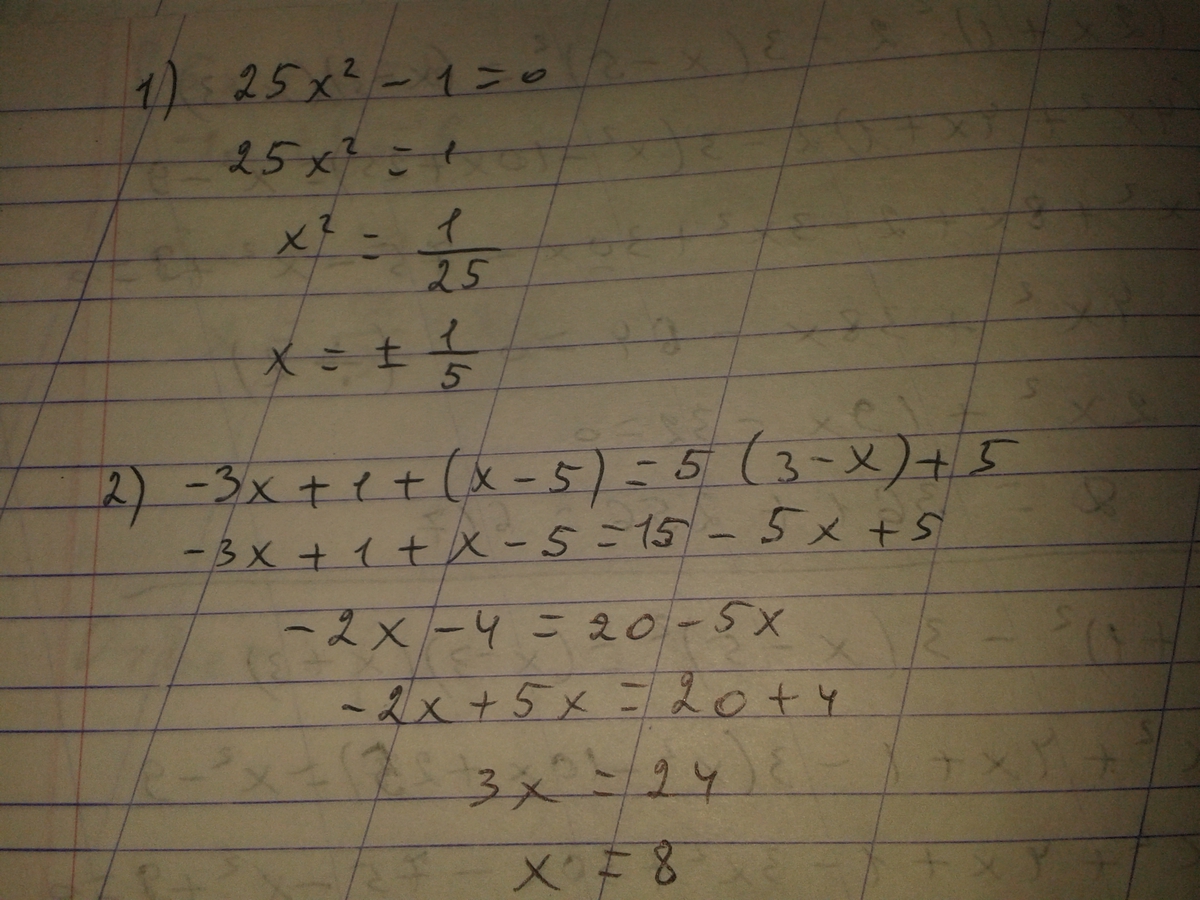 1) 25x² - 1 = 0
25x² = 1
x² = 1/25
x = ± 1/5
2) -3x + 1 + (x - 5) = 5 (3 - x) + 5
-3x + 1 + x - 5 = 15 - 5x + 5
-2x - 4 = 20 - 5x
-2x + 5x = 20 + 4
3x = 24
x = 8